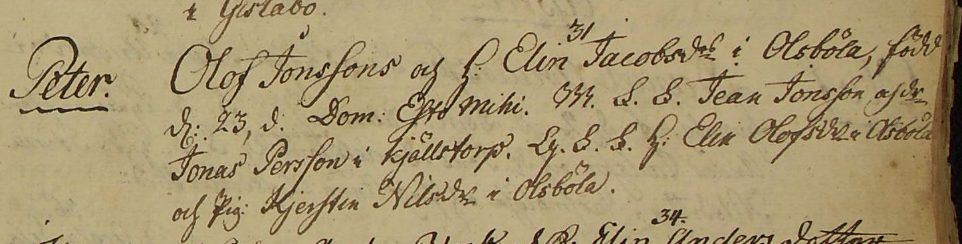 i Gislabo.
31
Peter. Olof Jonssons och H: Elin Jacobsdr i Olsböla, född
d: 23, d. Dom: Esto mihi. M. S. S. Jean Jonsson och dr
Jonas Persson i Kjällstorp. Q. S. S. H: Elin Olofsdr i Olsböla
och Pig: Kjerstin Nilsdr i Olsböla.
34.
Elin Anders dotter